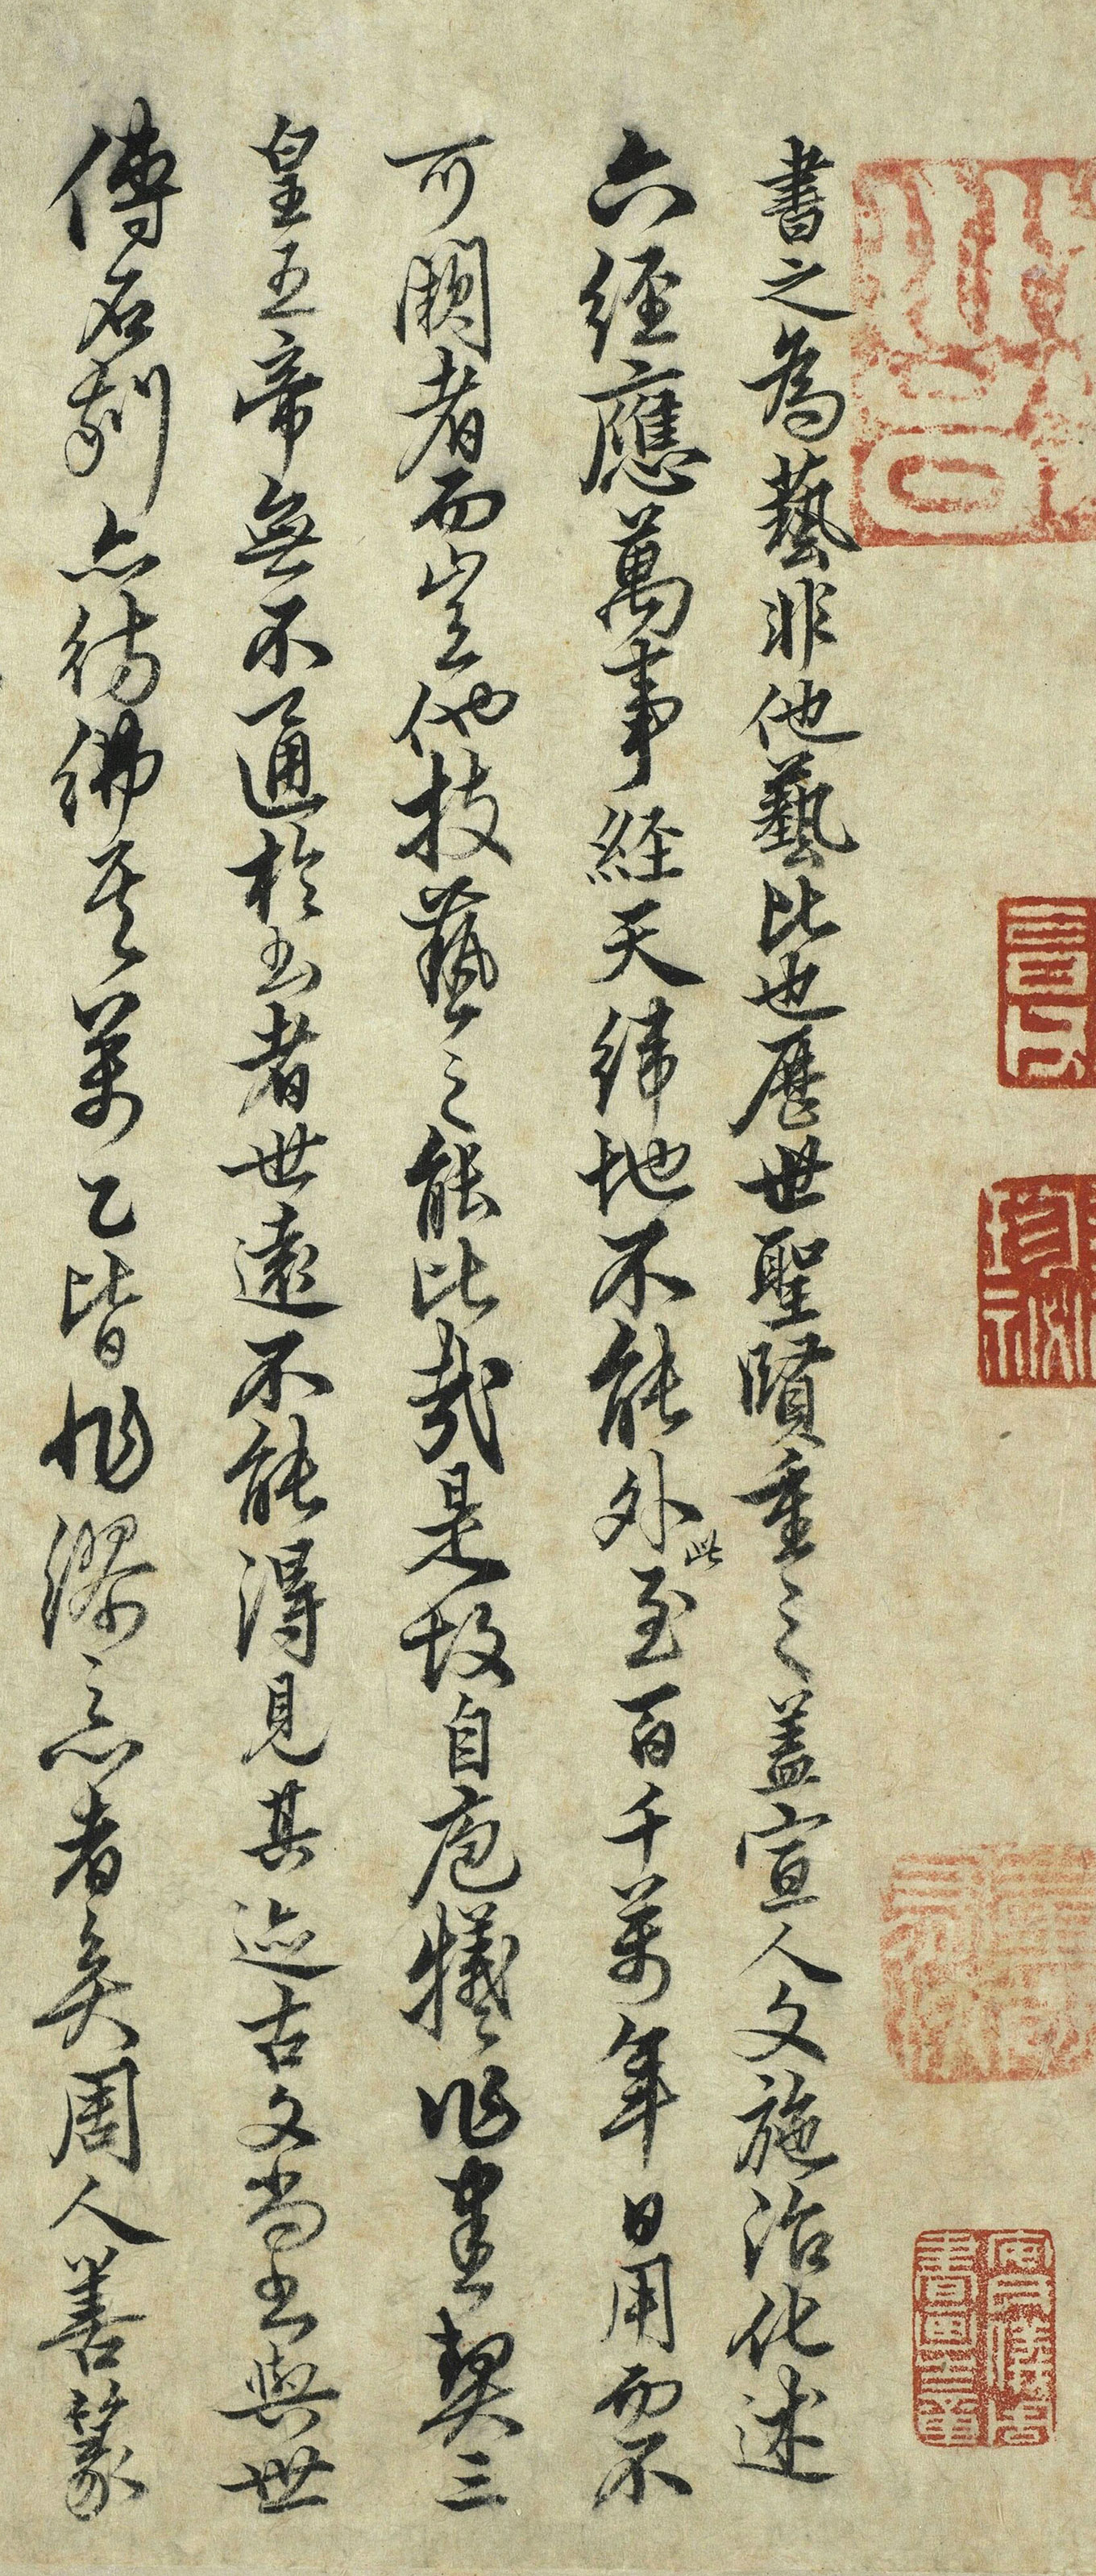 書之為藝非他藝比也歷世聖賢重之蓋宣人文施治化述
六經應萬事經天緯地不能外此至百千萬年日用而不
可闕者而豈他技藝之能比哉是故自庖犧作書契三
皇五帝無不通於書者世遠不能得見其迹古文尚書與世
傳石刻亦彷彿其萬乙皆非繆忘者矣周人善篆